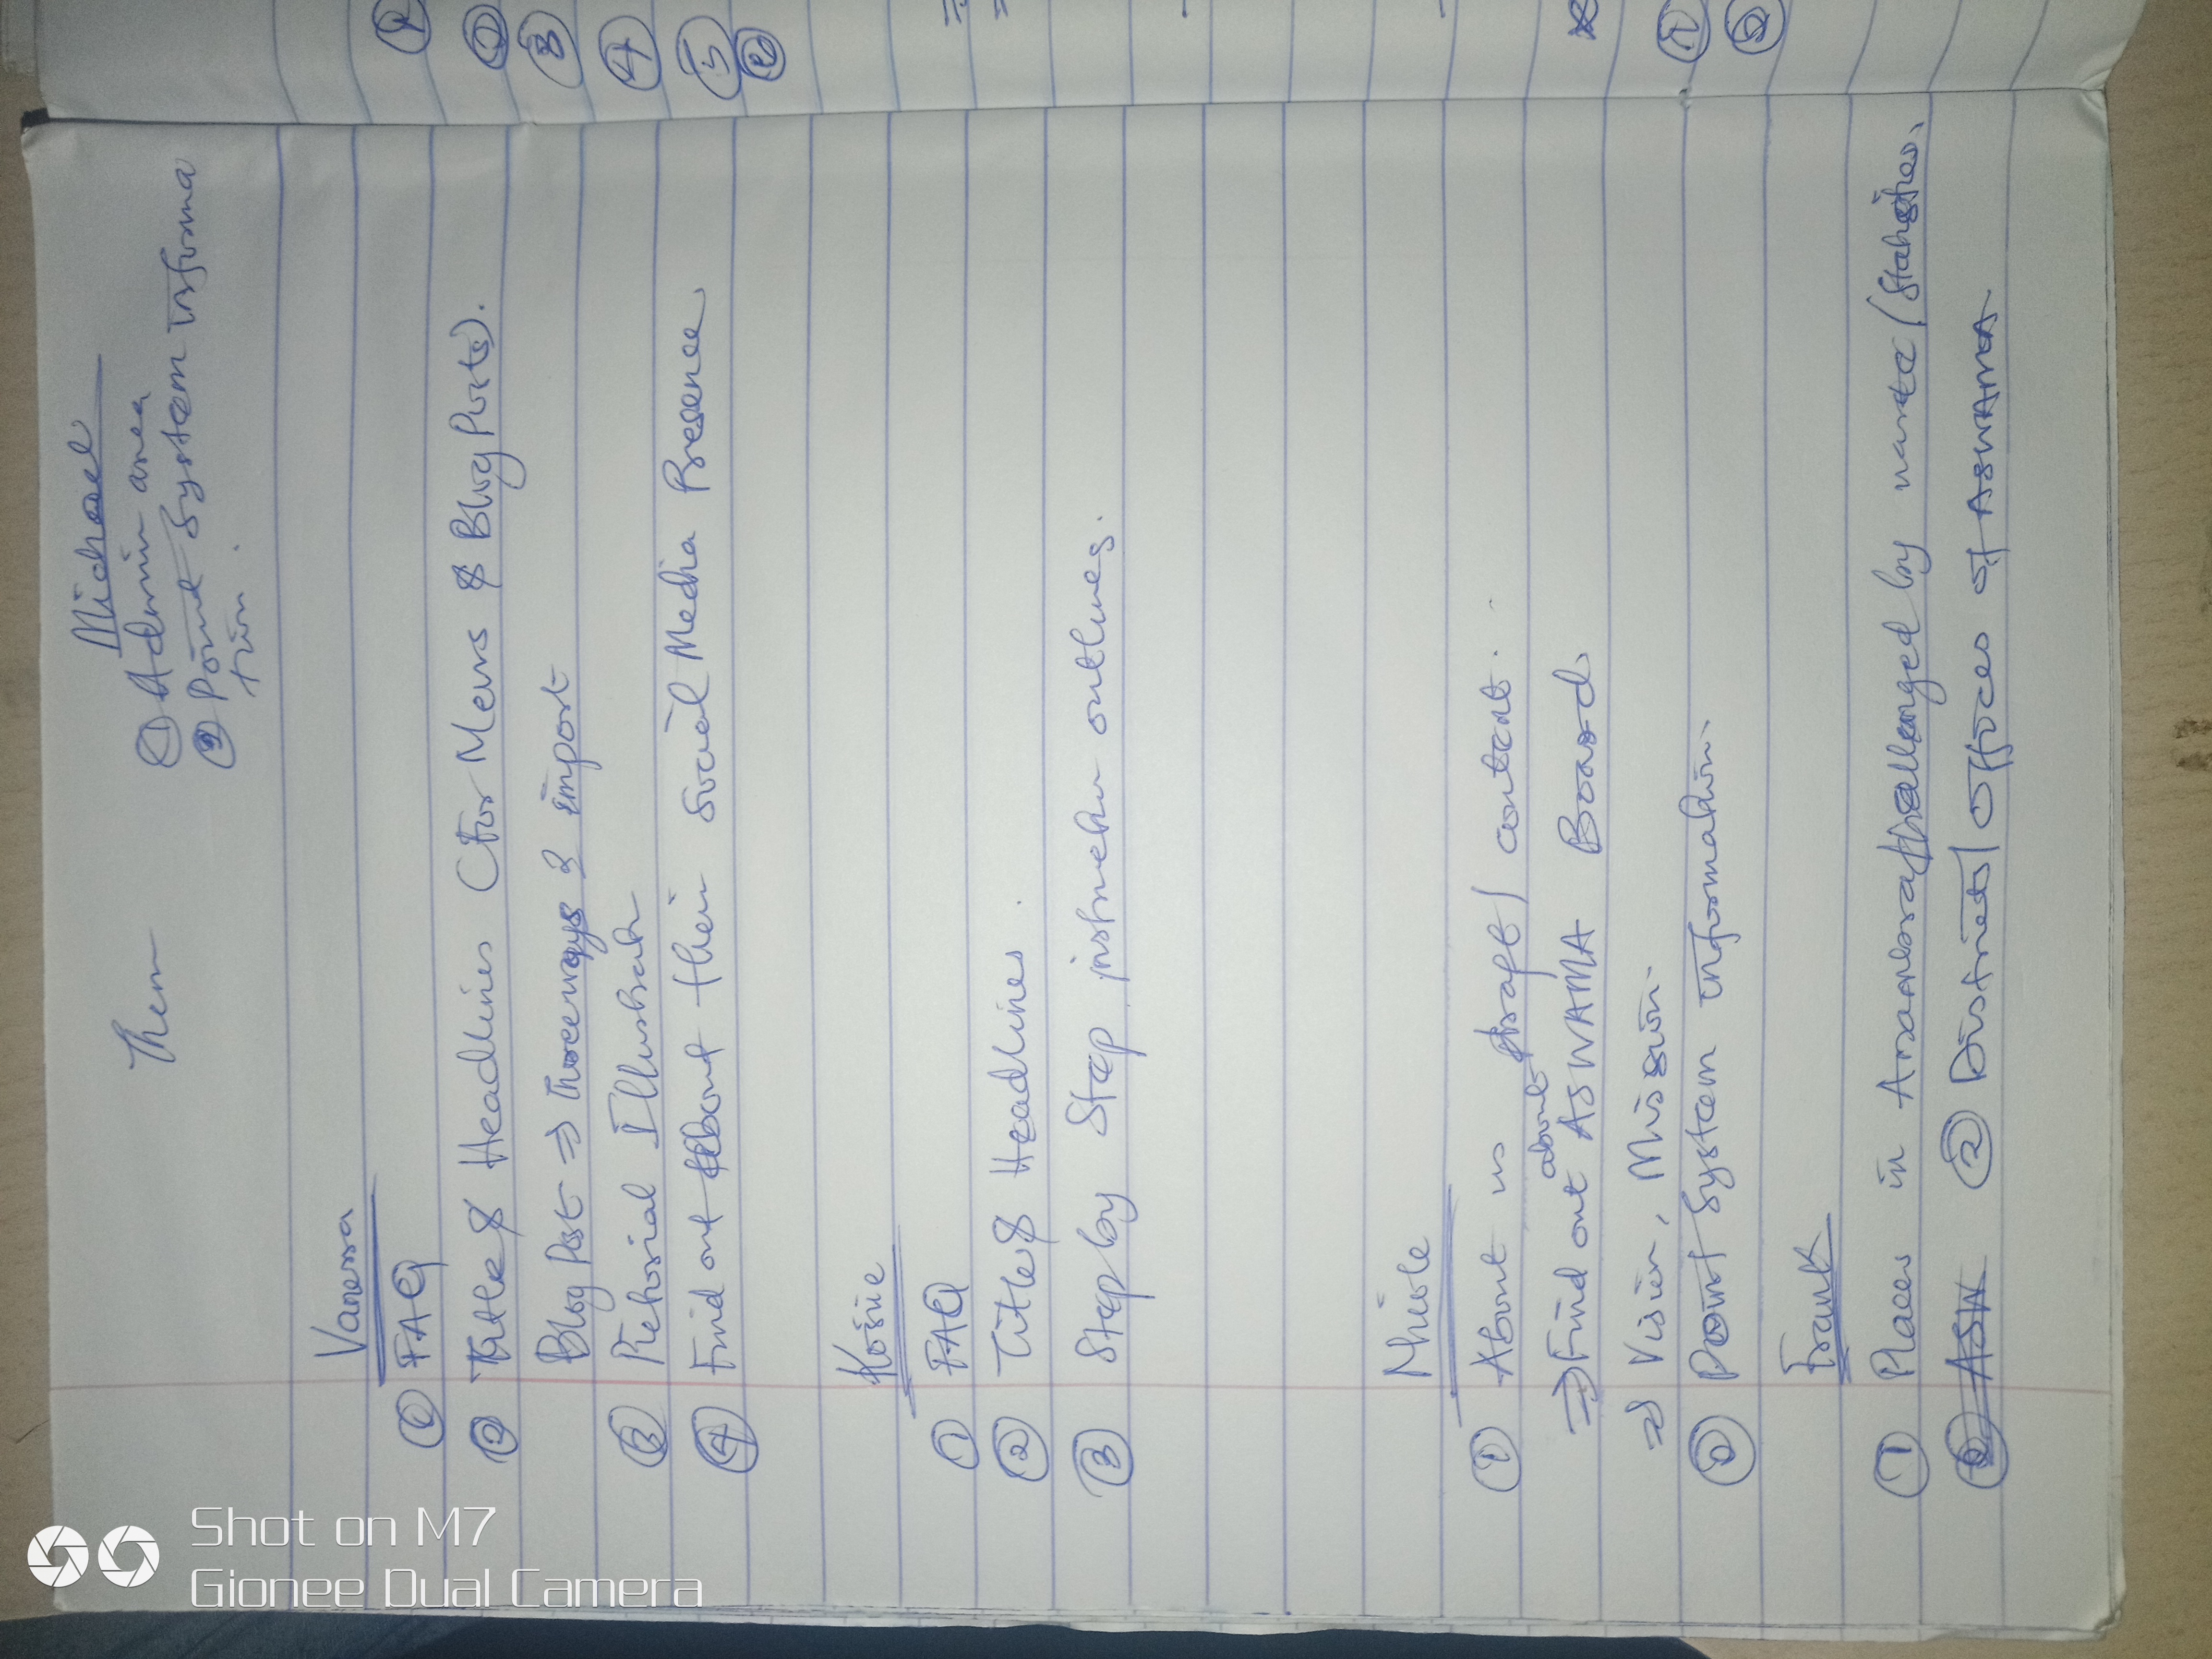 Them
Michael
① Admin area
② Point System informa
tion.
Vanessa
① FAQ
② Title & Headlines (For News & Blog Posts).
Blog Post ⇒ Three ways 2 import
③ Pictorial Illustratn
④ Find out about their Social Media Presence
Kosie
① FAQ
② Title & Headlines.
③ Step by Step instructn outlines.
Nicole
① About us draft/ content.
about
⇒ Find out ASWAMA Board
⇒ Vision, Mission.
② Point System information.
Frank
① Places in Anambra challenged by waste/Statistics.
② ASW ② Districts/ Offices of ASWAMA
①
②
3
4
5
6
①
②
Shot on M7
Gionee Dual Camera